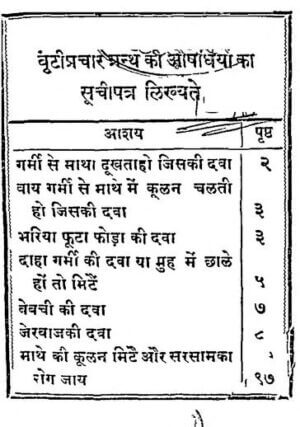 बूंटीप्रचार ग्रन्थ की औषधियों का
सूचीपत्र लिख्यते
आशय पृष्ठ
गर्मी से माथा दूखताहो जिसकी दवा २
वाय गर्मी से माथे में कूलन चलती
हो जिसकी दवा ३
भरिया फूटा फोड़ा की दवा ३
दाहा गर्मी की दवा या मुह में छाले
हों तो मिटें ५
बेबची की दवा ७
जेरबाजकी दवा ८
माथे की कूलन मिटैं और सरसामका
रोग जाय १७